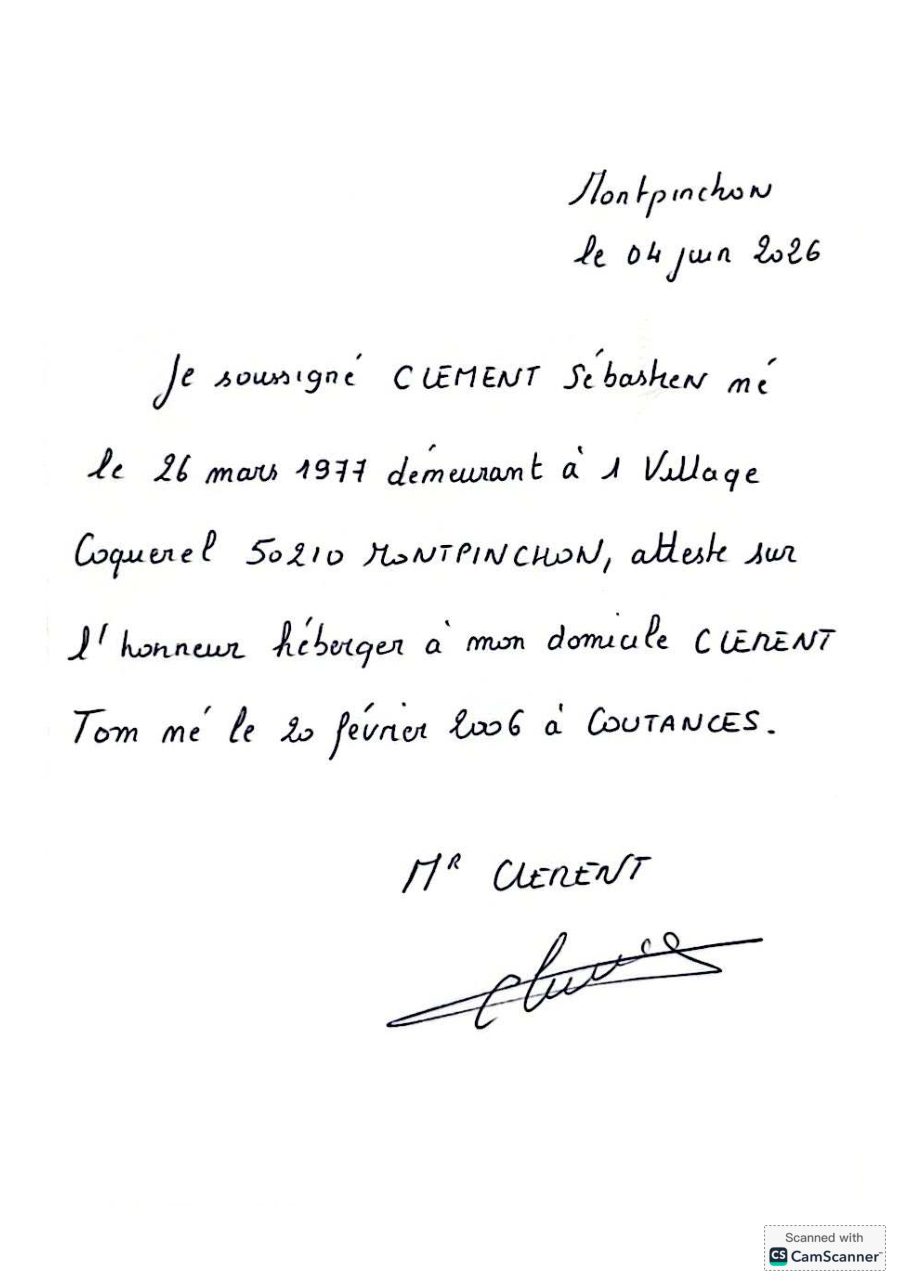 Montpinchon
le 04 juin 2026
Je soussigné CLEMENT Sébastien né
le 26 mars 1977 démeurant à 1 Village
Coquerel 50210 MONTPINCHON, atteste sur
l'honneur héberger à mon domicile CLEMENT
Tom né le 20 février 2006 à COUTANCES.
Mr CLEMENT
Scanned with
CS CamScanner